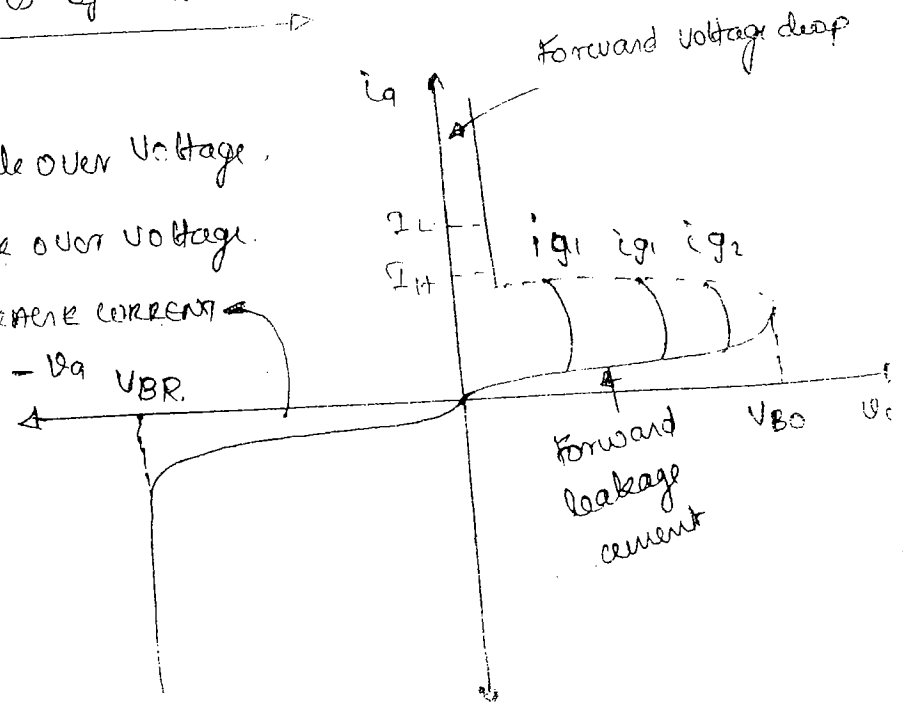 Forward voltage drop
ia
le over voltage.
IL
k over voltage.
ig1 ig1 ig2
IH
CURRENT
- Va
VBR.
VBO
Forward
leakage
current